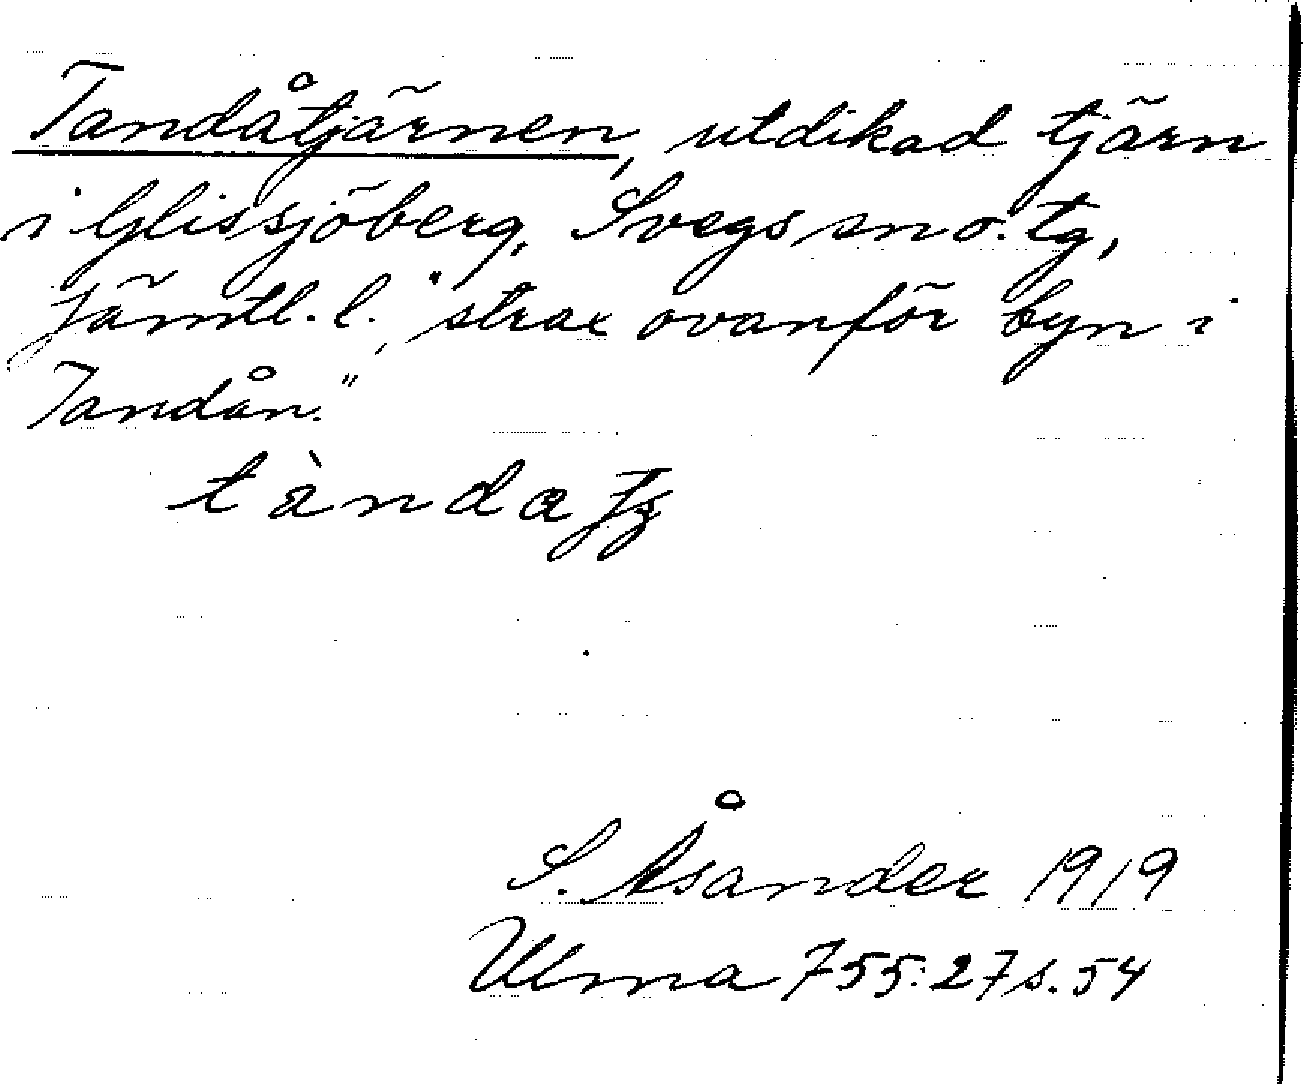 Tandåtjärnen, utdikad tjärn
i Glissjöberg, Svegs sn o. tg,
Jämtl. l., "strax ovanför byn i
Tandån."
S. Åsander 1919
Ulma 755:27 s. 54